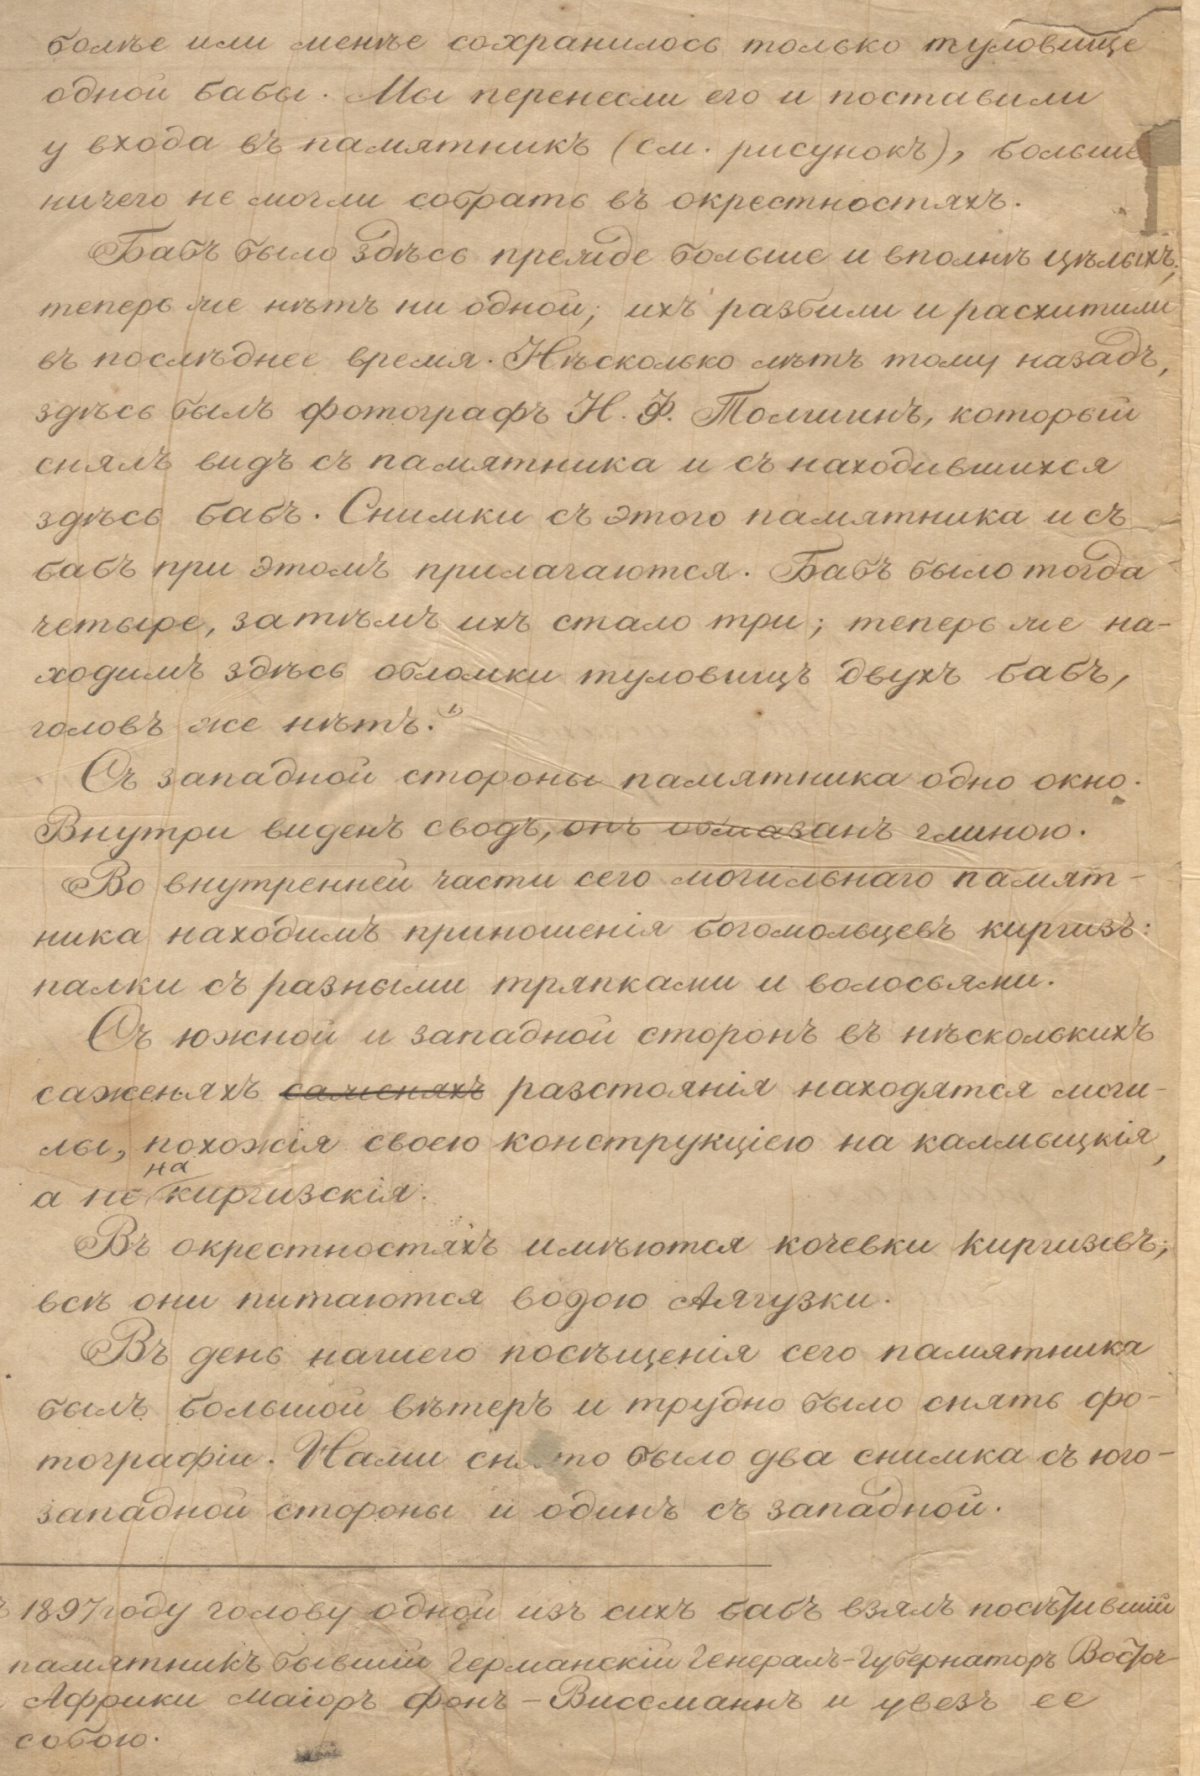 болѣе или менѣе сохранилось только туловище
одной бабы. Мы перенесли его и поставили
у входа въ памятникъ (см. рисунокъ), больше
ничего не могли собрать въ окрестностяхъ.
Бабъ было здѣсь прежде больше и вполнѣ цѣлыхъ,
теперь же нѣтъ ни одной; ихъ разбили и расхитили
въ послѣднее время. Нѣсколько лѣтъ тому назадъ,
здѣсь былъ фотографъ Н. Ф. Толшинъ, который
снялъ видъ съ памятника и съ находившихся
здѣсь бабъ. Снимки съ этого памятника и съ
бабъ при этомъ прилагаются. Бабъ было тогда
четыре, затѣмъ ихъ стало три; теперь же на-
ходимъ здѣсь обломки туловищъ двухъ бабъ,
головъ же нѣтъ. 1)
Съ западной стороны памятника одно окно.
Внутри виденъ сводъ, онъ обмазанъ глиною.
Во внутренней части сего могильнаго памят-
ника находимъ приношенія богомольцевъ киргизъ:
палки съ разными тряпками и волосьями.
Съ южной и западной сторонъ въ нѣсколькихъ
саженяхъ саженяхъ разстоянія находятся моги-
лы, похожія своею конструкціею на калмыцкія,
а не на киргизскія.
Въ окрестностяхъ имѣются кочевки киргизовъ;
всѣ они питаются водою Аягузки.
Въ день нашего посѣщенія сего памятника
былъ большой вѣтеръ и трудно было снять фо-
тографіи. Нами снято было два снимка съ юго-
западной стороны и одинъ съ западной.
1897 году голову одной изъ сихъ бабъ взялъ посѣтившій
памятникъ бывшій Германскій Генералъ-Губернаторъ Восточ
Африки Маіоръ фонъ-Виссманнъ и увезъ ее
собою.